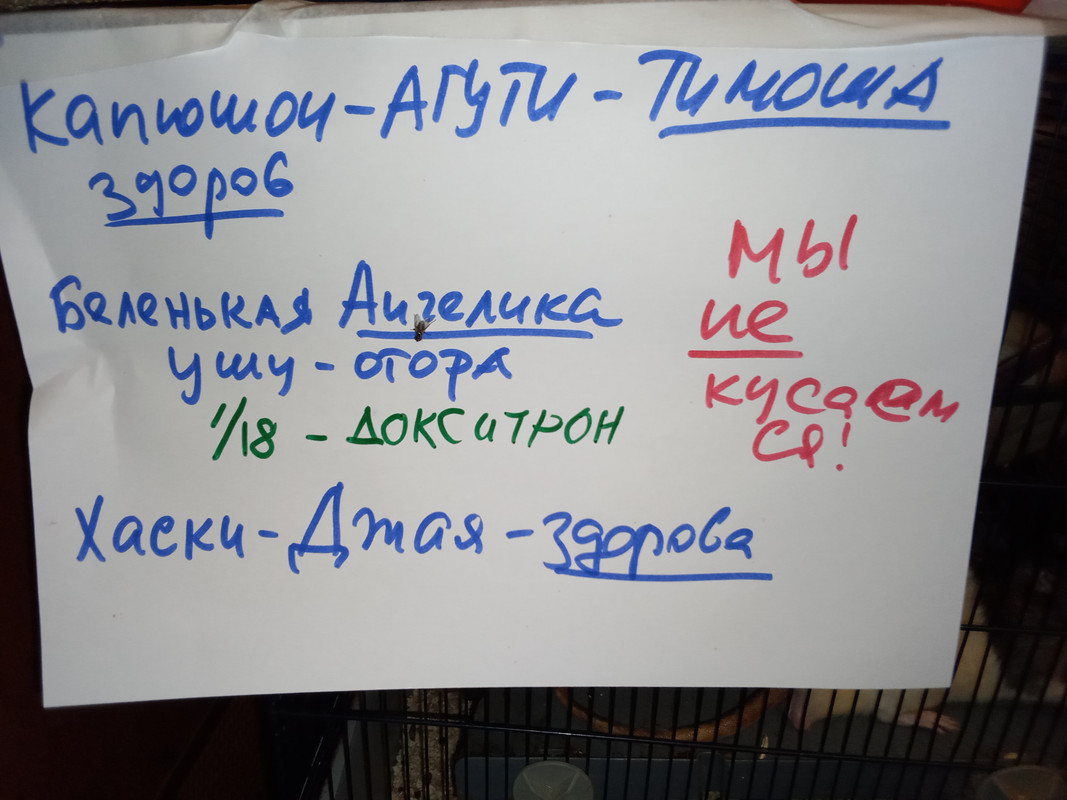 Капюшон - АГУТИ - Тимоша
здоров
Беленькая Ангелика
ушу - отора
1/18 - ДОКСИТРОН
Хаски - Джая - здорова
МЫ
не
кусаем
ся!